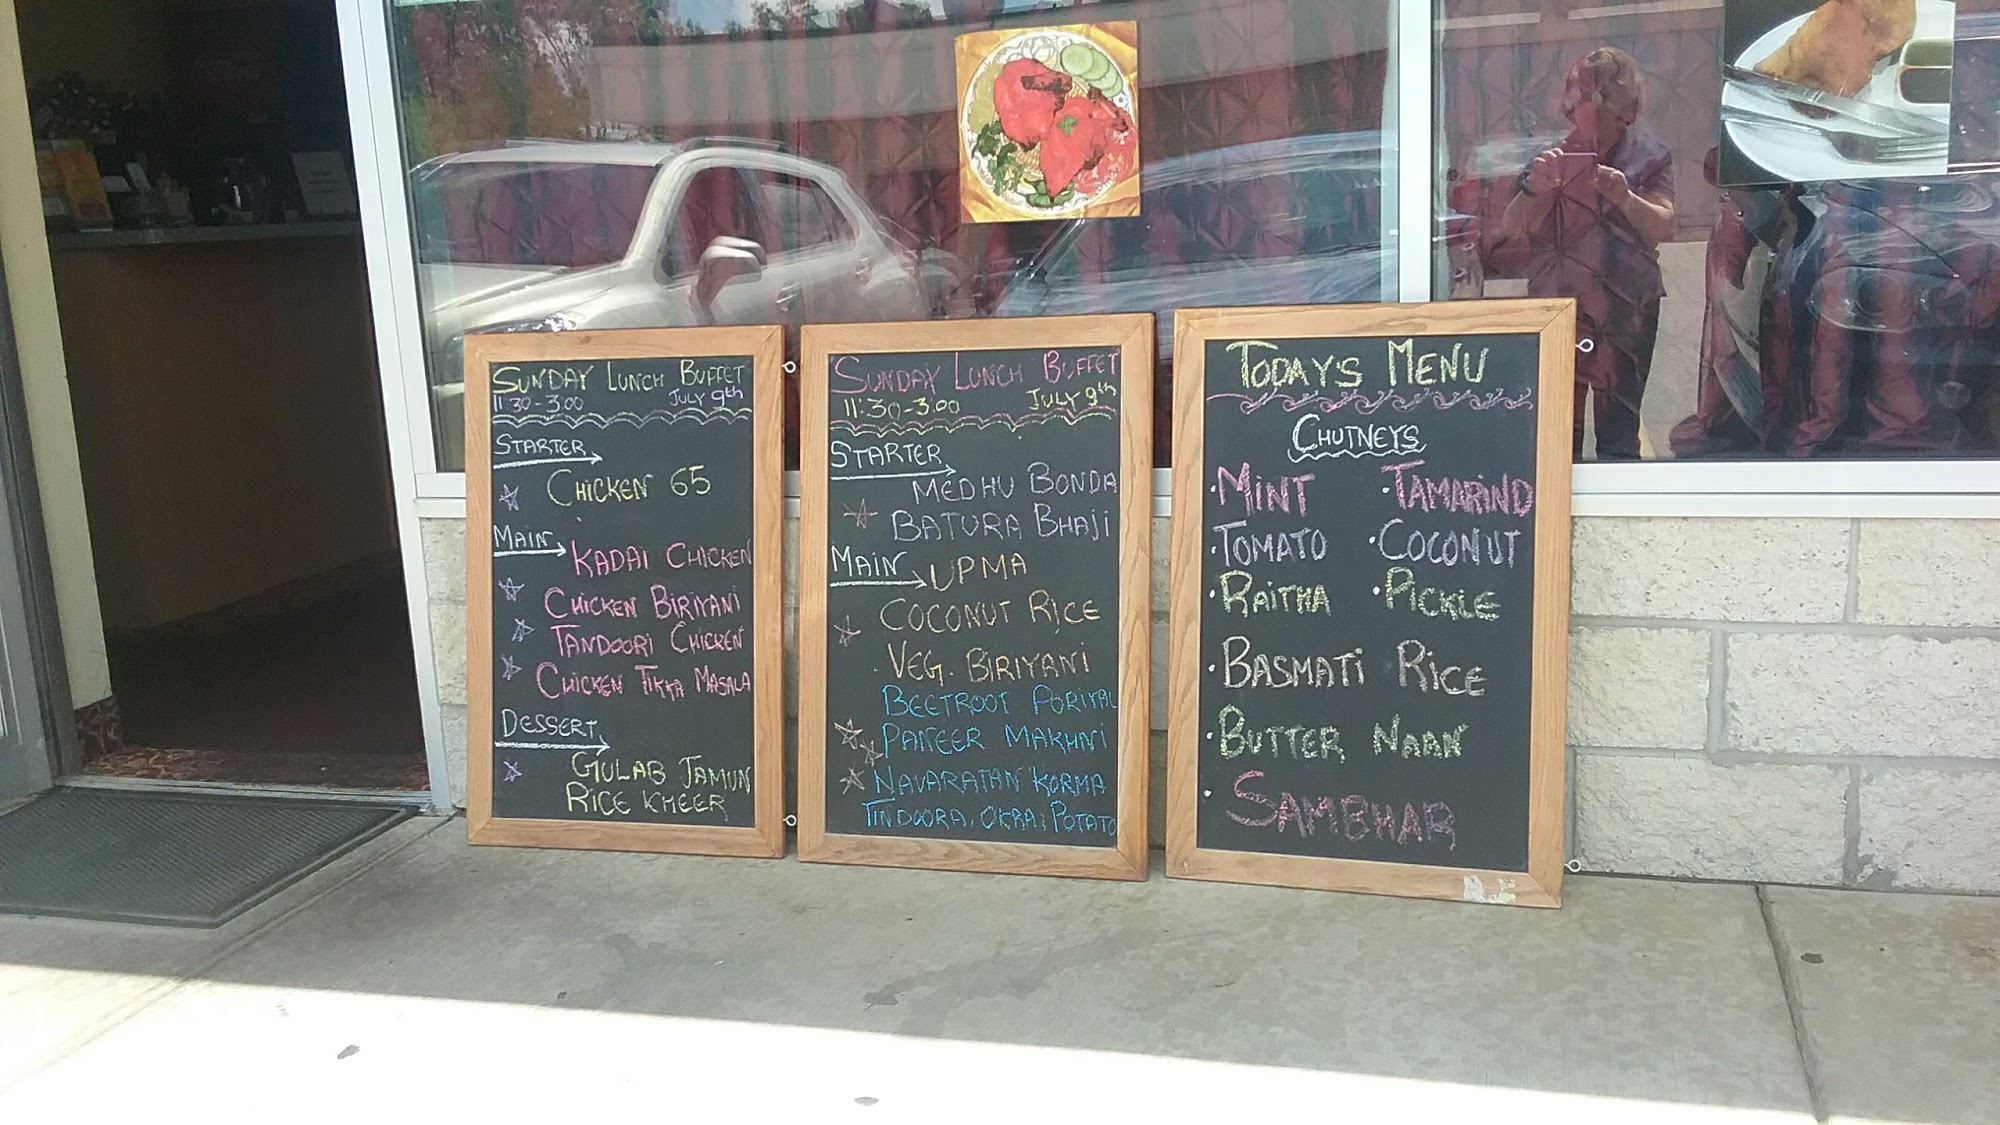 SUNDAY LUNCH BUFFET
11:30-3:00 JULY 9th
STARTER
CHICKEN 65
MAIN
KADAI CHICKEN
CHICKEN BIRIYANI
TANDOORI CHICKEN
CHICKEN TIKKA MASALA
DESSERT
GULAB JAMUN
RICE KHEER
SUNDAY LUNCH BUFFET
11:30-3:00 JULY 9th
STARTER
MEDHU BONDA
BATURA BHAJI
MAIN UPMA
COCONUT RICE
VEG. BIRIYANI
BEETROOT PORIYAL
PANEER MAKHNI
NAVARATAN KORMA
TINDOORA, OKRA, POTATO
TODAY'S MENU
CHUTNEYS
·MINT ·TAMARIND
·TOMATO ·COCONUT
·RAITHA ·PICKLE
·BASMATI RICE
·BUTTER NAAN
·SAMBHAR